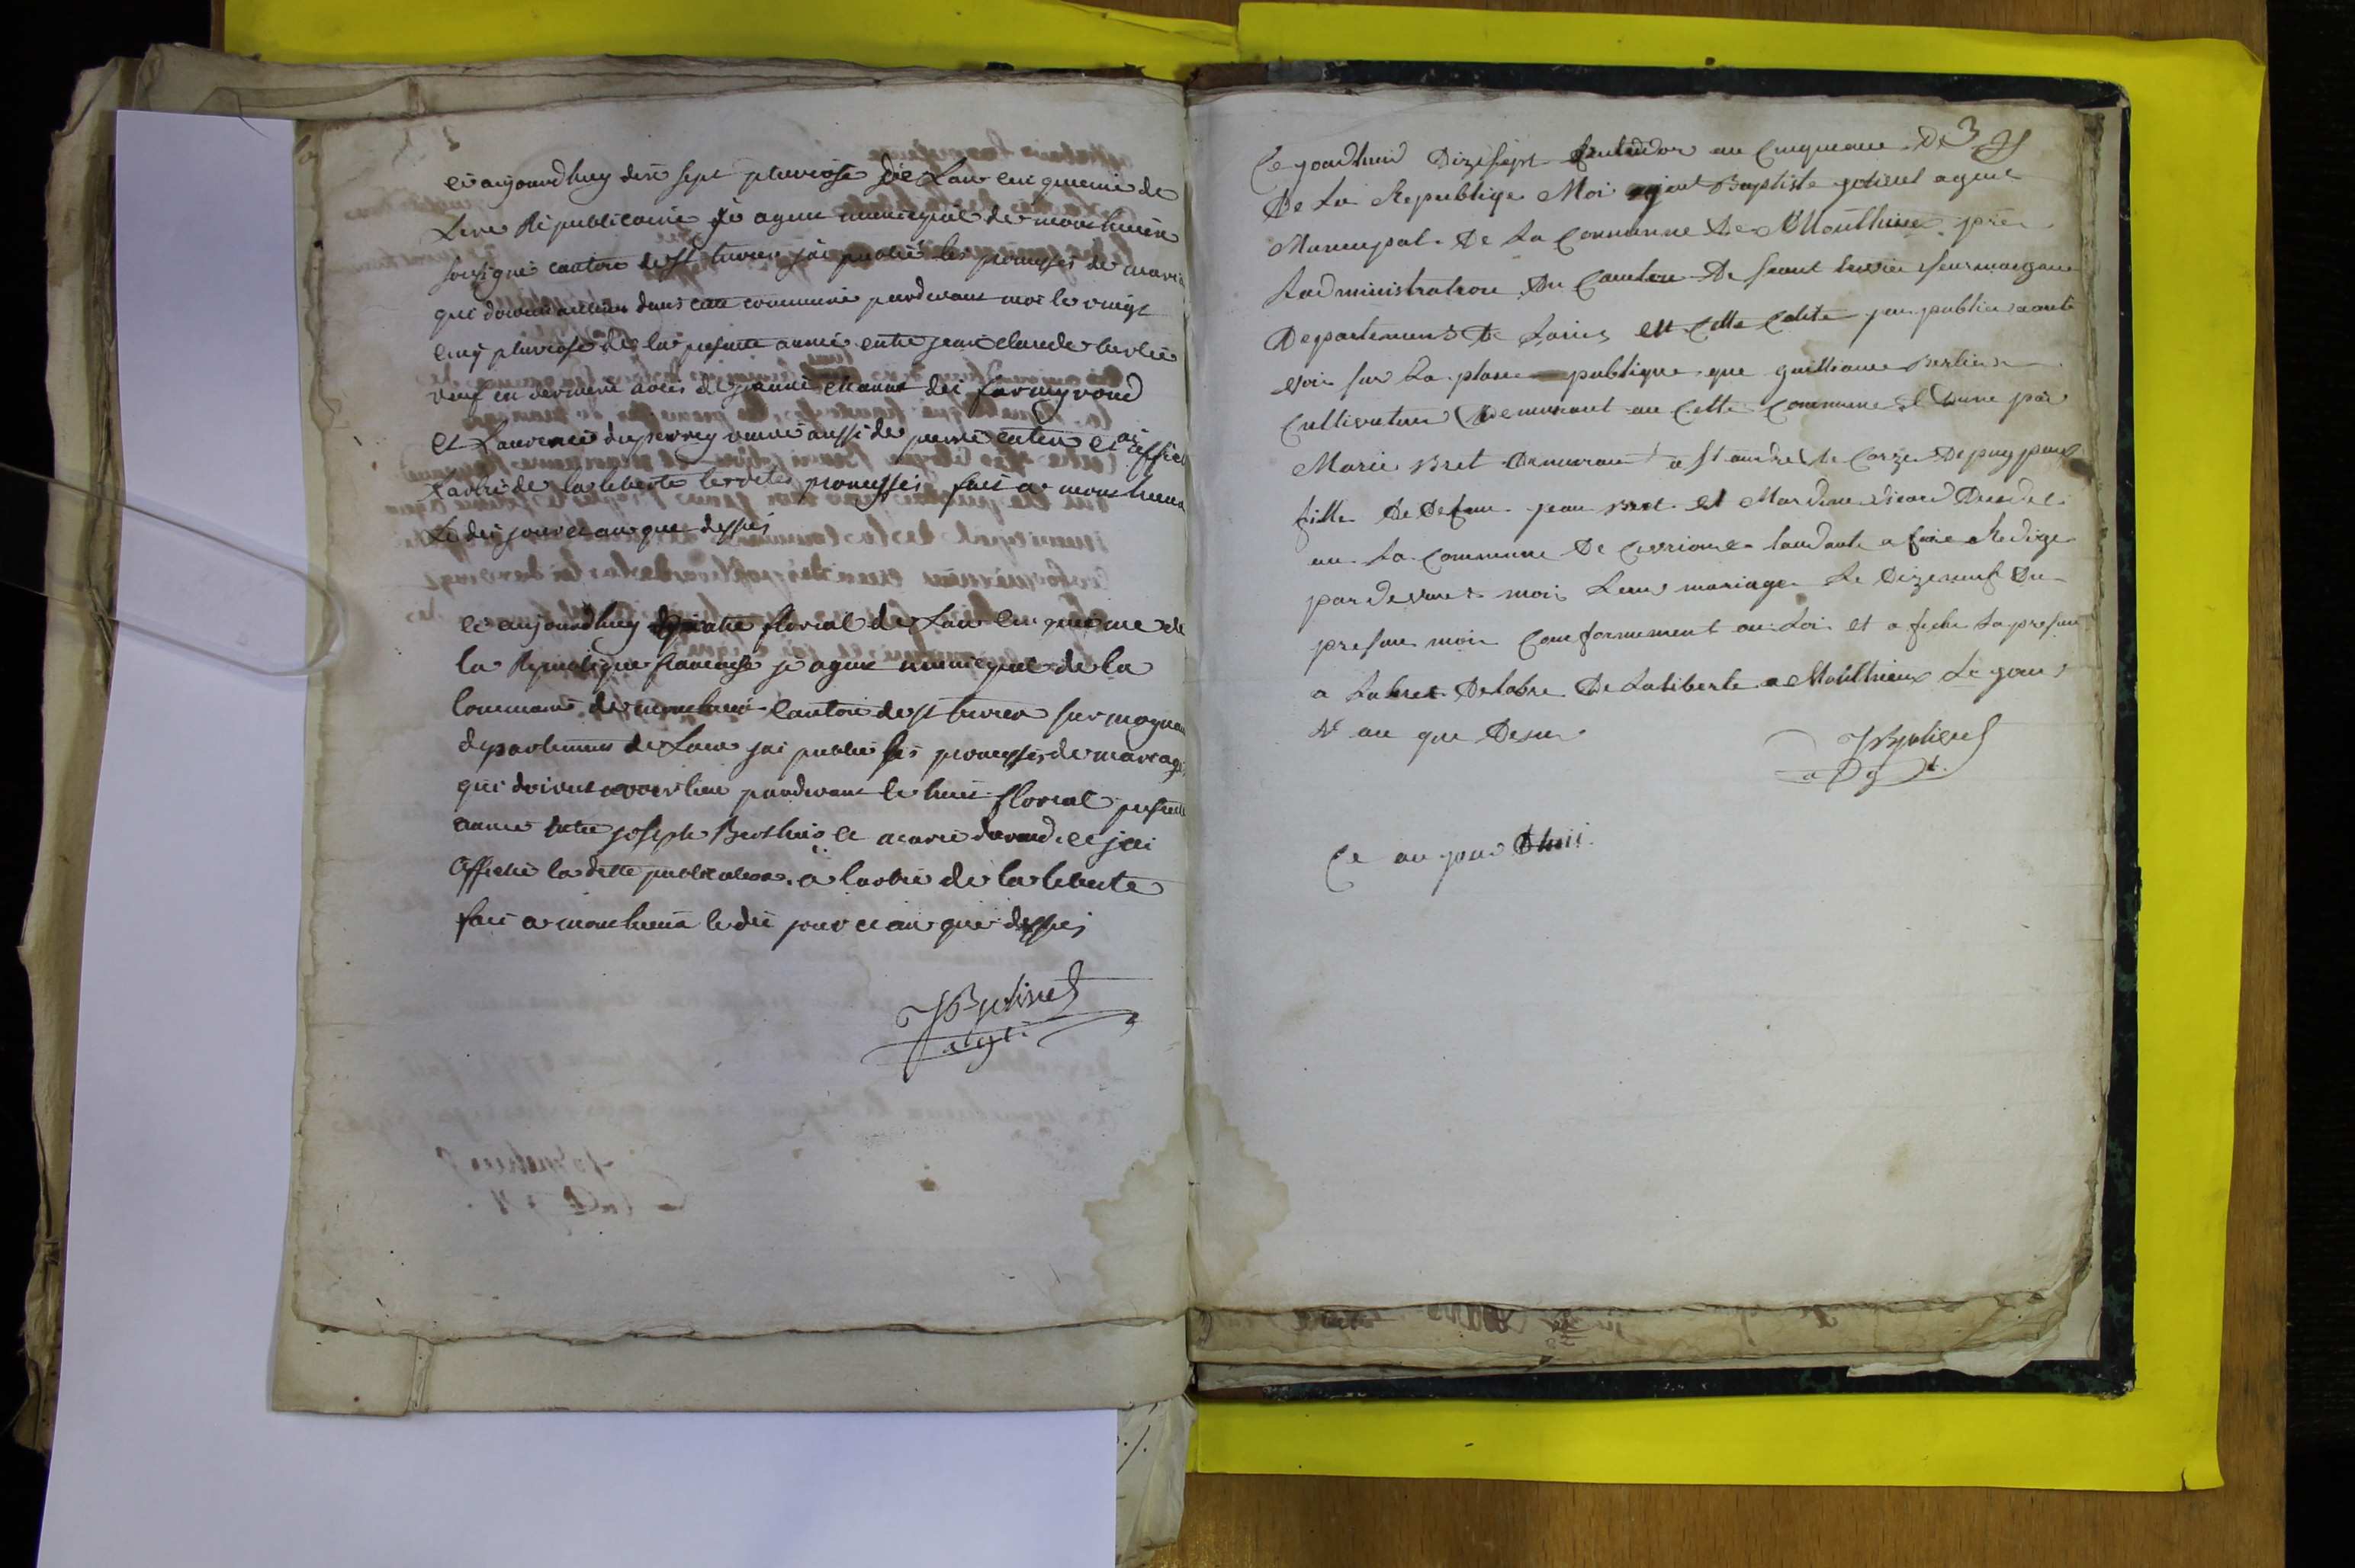 ce aujourdhuy dix sept pluviose de Lan cinquieme de
Lere Republicaine je agent municipal de monthieux
soussigné canton de st trivier jai publié les promesses de maria
qui doivent avoir lieu dans cette commune pardevant moi le vingt
cinq pluviose de la presente année entre jean claude berlie
veuf en derniere noces de jeanne chanut dit farmyrond
et Laurence duperrey veuve aussi de pierre catin et ai affiché
Larbre de la liberte lesdites promesses fait a monthieux
Le dit jour et an que dessus
ce aujourdhuy quatre floreal de Lan cinquieme de
la Republique francaise je agent municipal de la
Commune de monthieux canton de st trivier sur mognan
departement de Lain jai publié les promesses de mariage
qui doivent avoir lieu pardevant le huit floreal presente
annee entre joseph Berthis et marie durand et jai
affiché la dette publication a larbre de la liberte
fait a monthieux le dit jour et an que dessus
JBjolivet
agt
3
Ce jourdhuid Dizesept fructidor an Cinqueme De
De La Republiqe Moi jant Baptiste jolivet agent
Municipal De La Commune De Mouthieux pres
Ladministration Du Canton De saint trivier surmoigans
Departement De Lains et Cette Calité jai publier aaute
voix sur La place publique que guilliaume Berlier
Cultivateur Demeurant au Cette Commune et Dune par
Marie Bret Demeurant a st andre le Corzi
fille De Defeun jean Bret et
au La Commune De Civrieux tandante a faire Redige
par devant moi Leurs mariage Le Dizeneuf Du
presan mois Conformement au Loi et afiche La presan
a Labre De Laliberte a Mohthieux Le jour
et an que Desu
JBjolivet
agt
Ce au jour Dhui